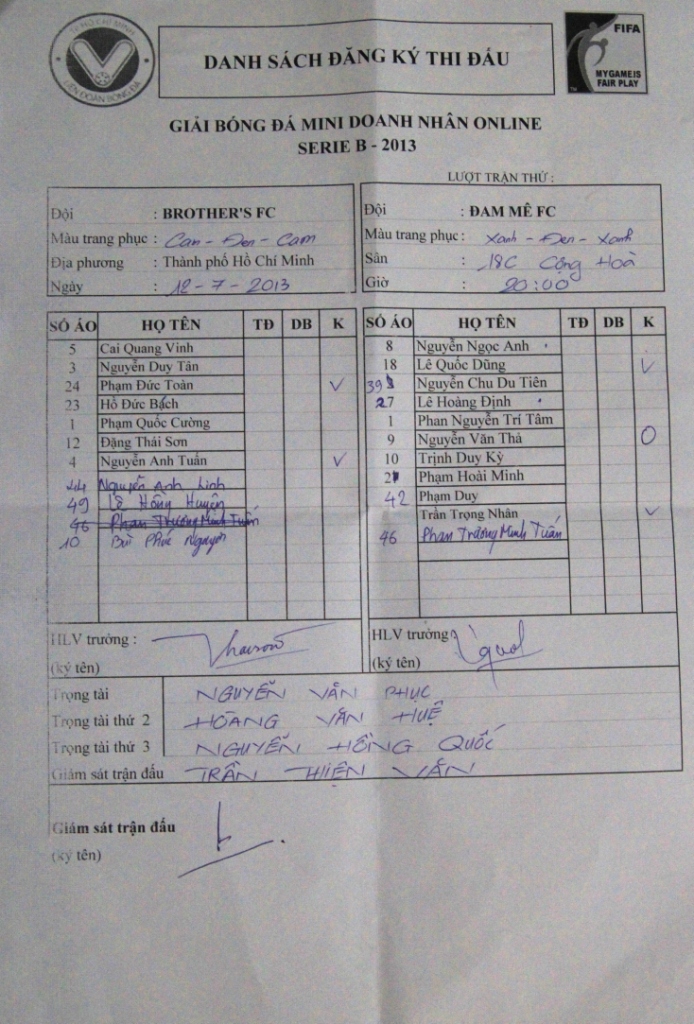 TP HỒ CHÍ MINH
LIÊN ĐOÀN BÓNG ĐÁ
DANH SÁCH ĐĂNG KÝ THI ĐẤU
FIFA
MY GAME IS
FAIR PLAY
GIẢI BÓNG ĐÁ MINI DOANH NHÂN ONLINE
SERIE B - 2013
LƯỢT TRẬN THỨ :
Đội : BROTHER'S FC
Màu trang phục : Cam - Đen - Cam
Địa phương : Thành phố Hồ Chí Minh
Ngày : 12 - 7 - 2013
Đội : ĐAM MÊ FC
Màu trang phục : Xanh - Đen - Xanh
Sân : 18C Cộng Hoà
Giờ : 20:00
SỐ ÁO HỌ TÊN TĐ DB K
5 Cai Quang Vinh
3 Nguyễn Duy Tân
24 Phạm Đức Toàn V
23 Hồ Đức Bạch
1 Phạm Quốc Cường
12 Đặng Thái Sơn
4 Nguyễn Anh Tuấn V
44 Nguyễn Anh Linh
49 Lê Hồng Huyên
46 Phan Trương Minh Tuấn
10 Bùi Phúc Nguyên
SỐ ÁO HỌ TÊN TĐ DB K
8 Nguyễn Ngọc Anh
18 Lê Quốc Dũng V
39 Nguyễn Chu Du Tiên
27 Lê Hoàng Định
1 Phan Nguyễn Trí Tâm
9 Nguyễn Văn Thả O
10 Trịnh Duy Kỳ
Phạm Hoài Minh
42 Phạm Duy
Trần Trọng Nhân V
46 Phan Trương Minh Tuấn
HLV trưởng :
(ký tên)
HLV trưởng
(ký tên)
Trọng tài NGUYỄN VĂN PHỤC
Trọng tài thứ 2 HOÀNG VĂN HUỆ
Trọng tài thứ 3 NGUYỄN HỒNG QUỐC
Giám sát trận đấu TRẦN THIỆN VĂN
Giám sát trận đấu
(ký tên)